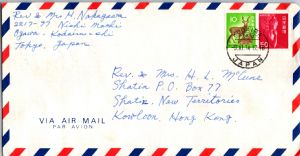 Rev & Mrs H. Nakagawa
2217-77 Nishi Machi
Ogawa - Kodaira-shi
Tokyo, Japan
10
JAPAN
Rev. & Mrs. H. L. McClune
Shatin P.O. Box 77
Shatin, New Territories
Kowloon, Hong Kong.
VIA AIR MAIL
PAR AVION